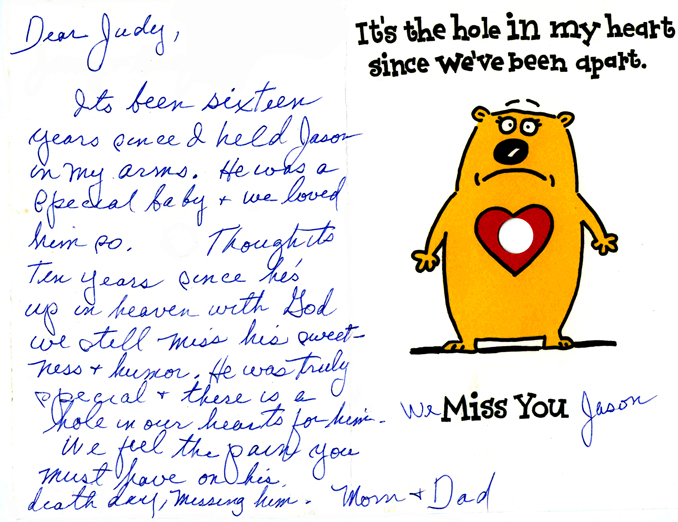 Dear Judy,
Its been sixteen
years since I held Jason
in my arms. He was a
special baby + we loved
him so. Though its
ten years since he's
up in heaven with God
we still miss his sweet-
ness + humor. He was truly
special + there is a
hole in our hearts for him.
We feel the pain you
must have on his
death day, missing him. Mom + Dad
It's the hole in my heart
since we've been apart.
We Miss You Jason